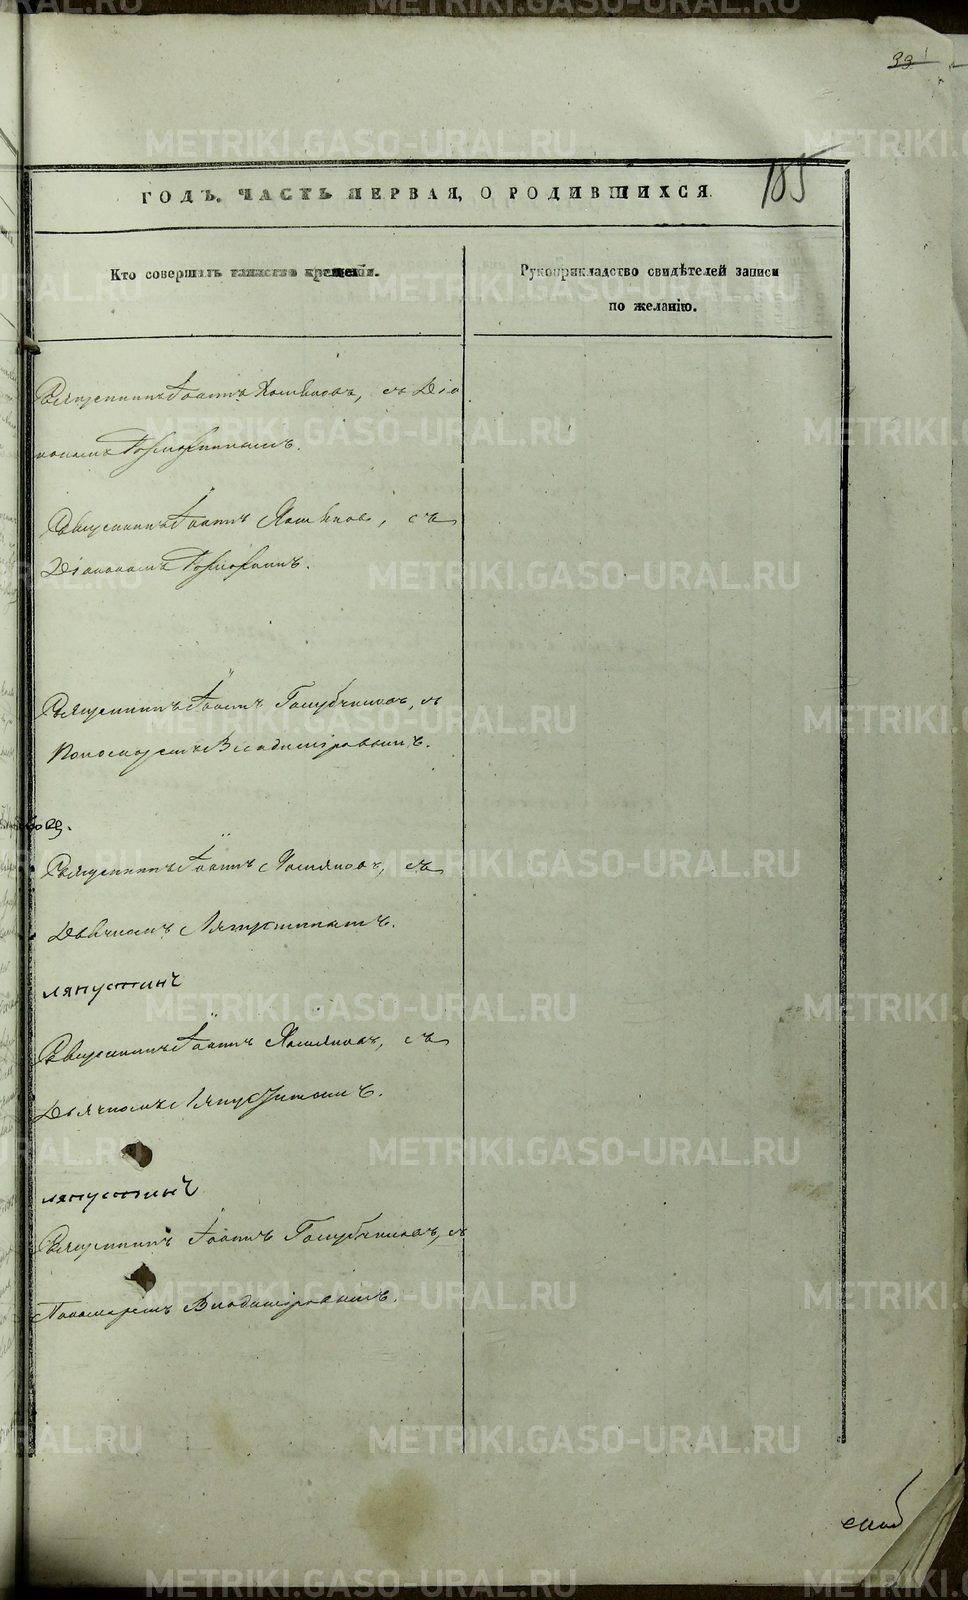 33
185
ГОДЪ. ЧАСТЬ ПЕРВАЯ, О РОДИВШИХСЯ.
Кто совершалъ таинство крещенія.
Рукоприкладство свидѣтелей записи
по желанію.
Священникъ Іоаннъ Хомяковъ, съ Діа
кономъ
Священникъ Іоаннъ Хомяковъ, съ
Діакономъ
Священникъ Іоаннъ Голубчиковъ, съ
Пономаремъ Владиміровымъ.
Священникъ Іоаннъ Хомяковъ, съ
Дьячкомъ Ляпустинымъ.
Ляпустинъ
Священникъ Іоаннъ Хомяковъ, съ
Дьячкомъ Ляпустинымъ.
Ляпустинъ
Священникъ Іоаннъ Голубчиковъ, съ
Пономаремъ Владиміровымъ.
METRIKI.GASO-URAL.RU